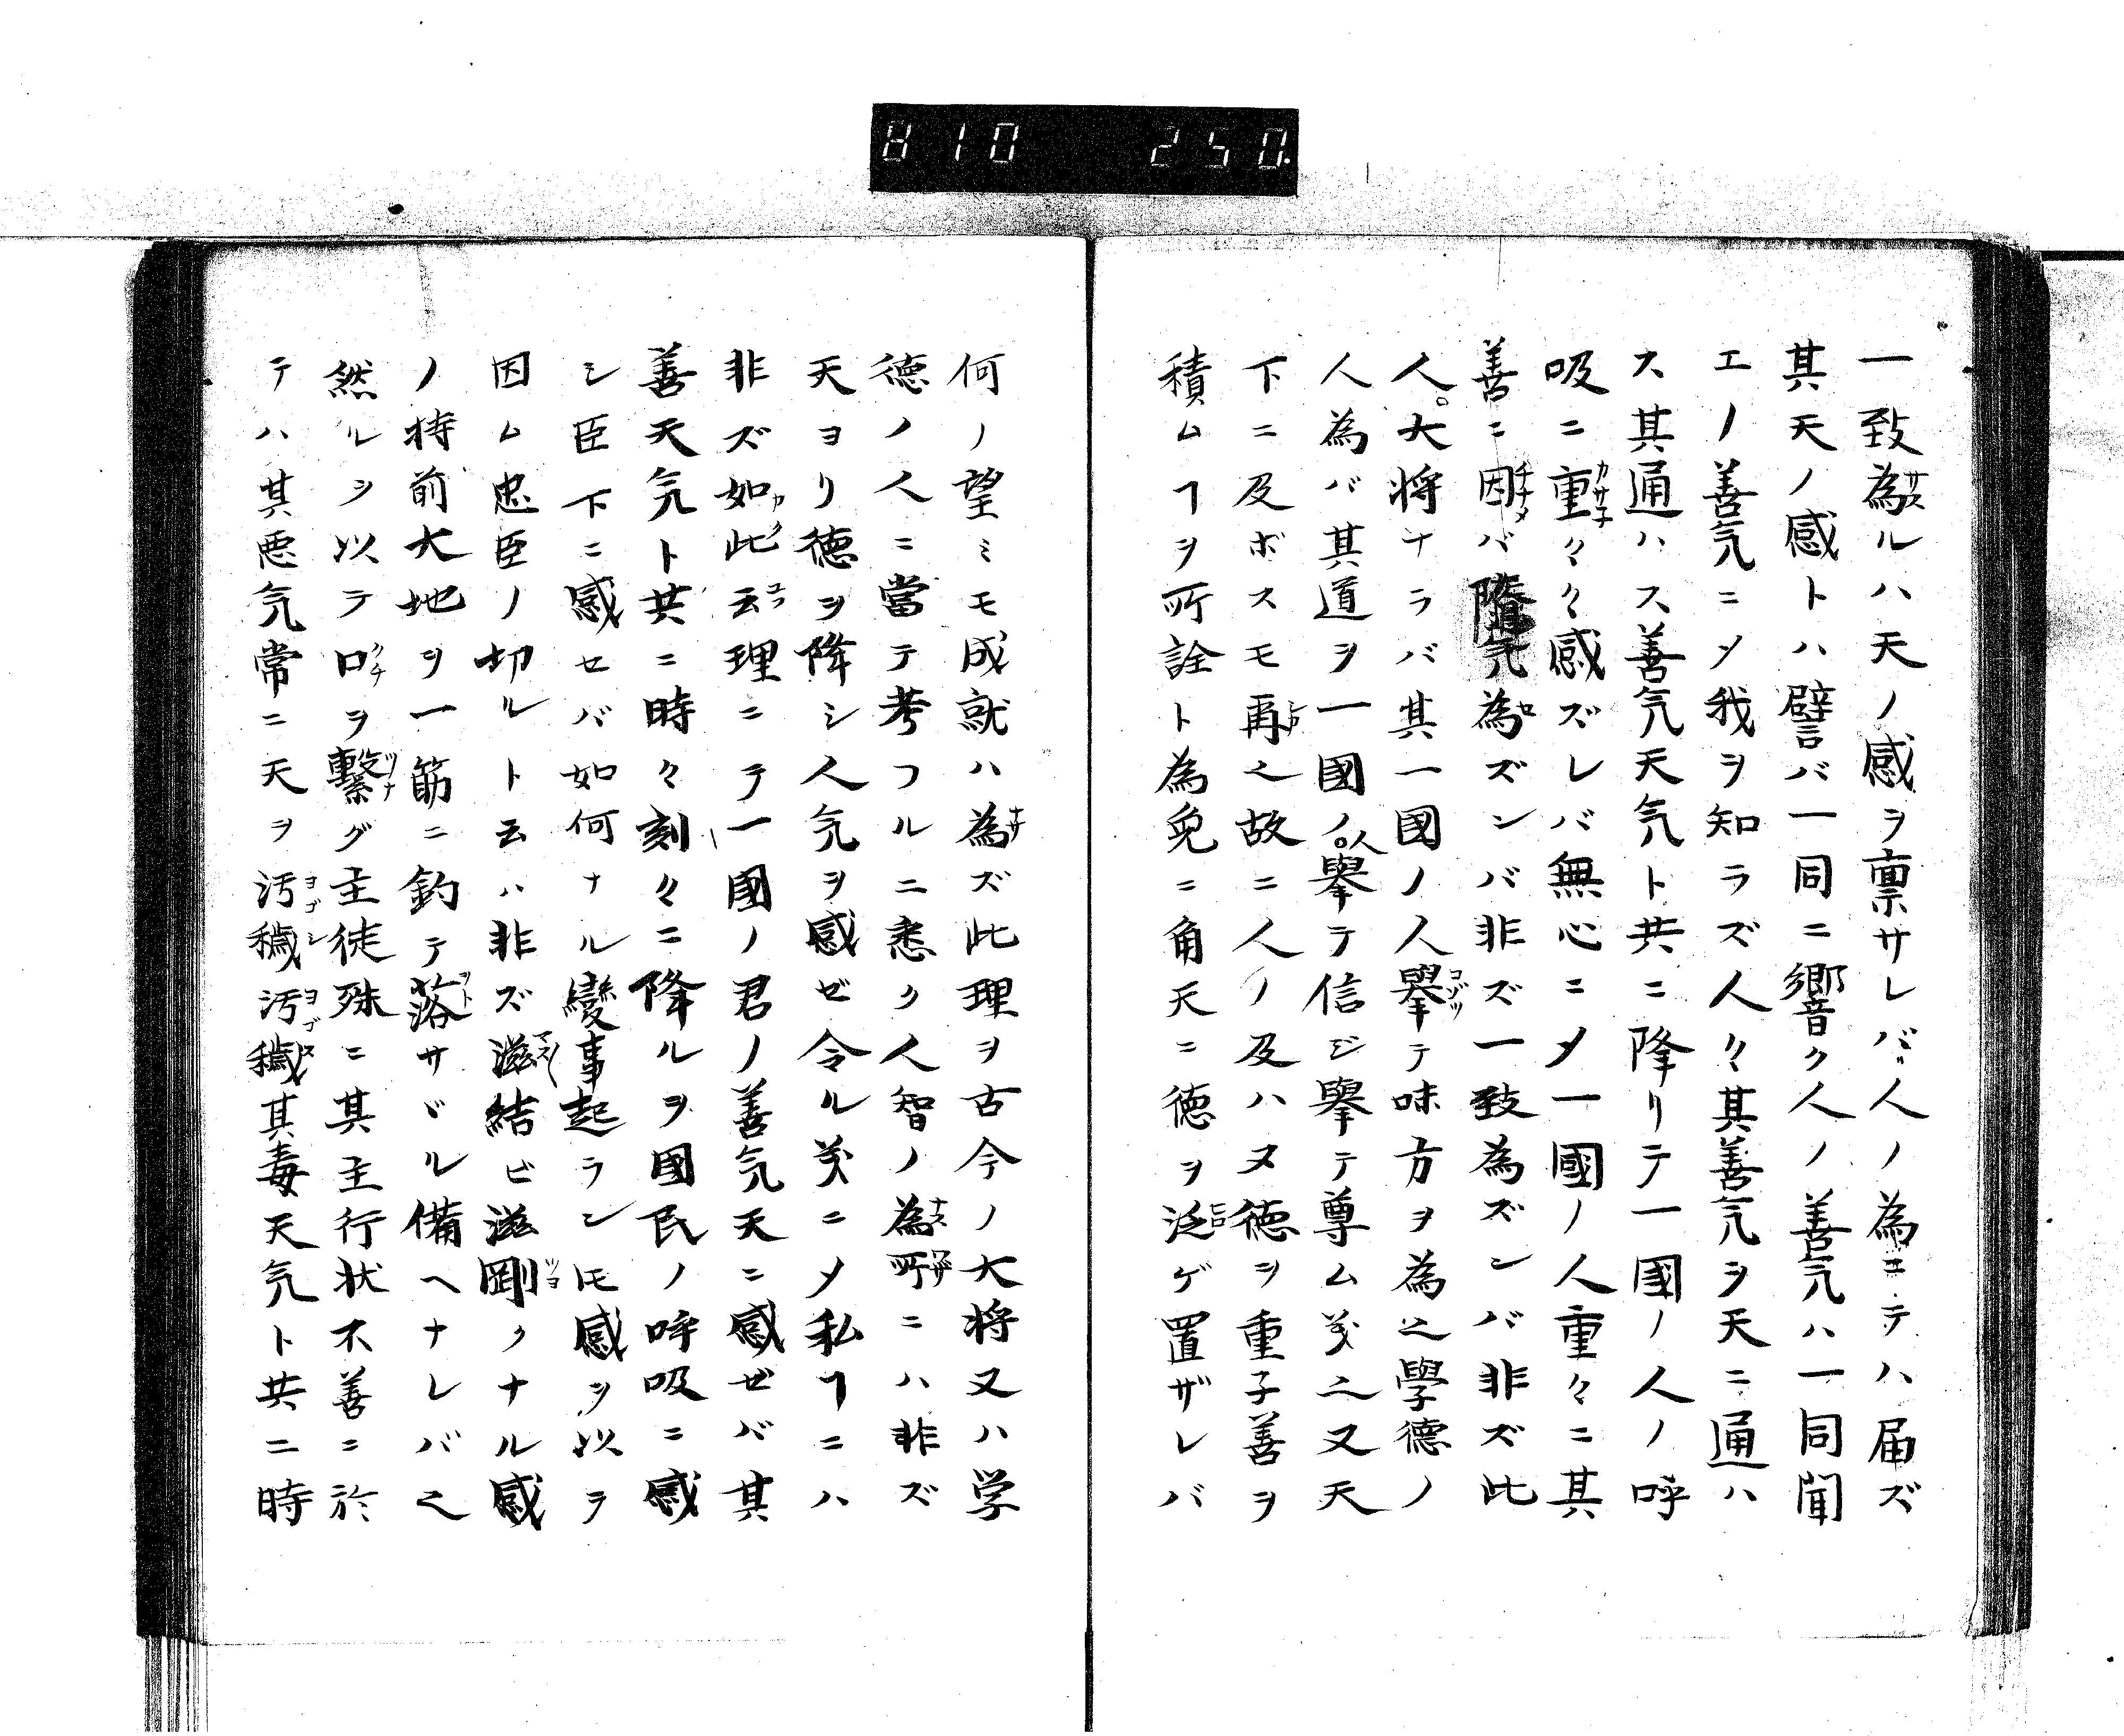 810 250.
一致為ルハ天ノ感ヲ稟サレバ人ノ為ニテハ届ズ
其天ノ感トハ譬バ一同ニ響ク人ノ善気ハ一同聞
エノ善気ニ〆我ヲ知ラズ人々其善気ヲ天ニ通ハ
ス其通ハス善気天気ト共ニ降リテ一國ノ人ノ呼
吸ニ重々々感ズレバ無心ニ〆一國ノ人重々ニ其
善ニ因バ隨気為ズンバ非ズ一致為ズンバ非ズ此
人大将ナラバ其一國ノ人擧テ味方ヲ為之學德ノ
人為バ其道ヲ一國ノ人擧テ信ジ擧テ尊ム义之又天
下ニ及ボスモ再之故ニ人ノ及ハヌ德ヲ重子善ヲ
積ムヿヲ所詮ト為兔ニ角天ニ徳ヲ泛ゲ置ザレバ
何ノ望ミモ成就ハ為ズ此理ヲ古今ノ大将又ハ学
德ノ人ニ當テ考フルニ悉ク人智ノ為所ニハ非ズ
天ヨリ德ヲ降シ人気ヲ感ゼ令ル义ニ〆私ヿニハ
非ズ如此云理ニテ一國ノ君ノ善気天ニ感ゼバ其
善天気ト共ニ時々刻々ニ降ルヲ國民ノ呼吸ニ感
シ臣下ニ感セバ如何ナル變事起ランモ感ヲ以ラ
因ム忠臣ノ切ルト云ハ非ズ滋結ビ滋剛クナル感
ノ持前大地ヲ一筋ニ釣テ落サヾル備ヘナレバ之
然ルヲ以テ口ヲ繋グ主徒殊ニ其主行状不善ニ於
テハ其悪気常ニ天ヲ汚穢汚穢其毒天気ト共ニ時